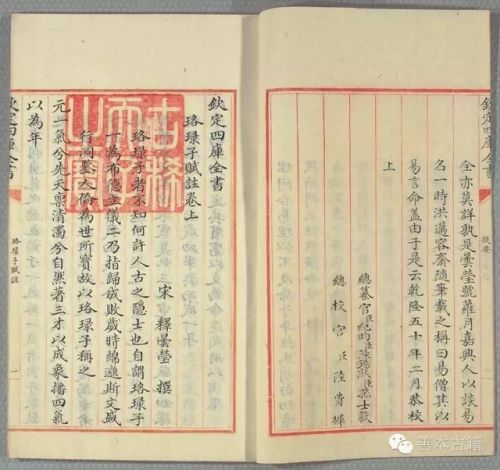 欽定四庫全書
提要
全亦莫詳孰是曇瑩號蘿月嘉興人以談易
名一時洪邁容齋隨筆載之稱曰易僧其以
易言命蓋由于是云乾隆五十年二月恭校
上
總纂官臣紀昀臣陸錫熊臣孫士毅
總校官臣陸費墀
欽定四庫全書
珞琭子賦註卷上
宋 釋曇瑩 撰
珞琭子者不知何許人古之隱士也自謂珞琭子
一為布德立儀二乃指歸成敗歲時綿邈斯文盛
行洞基人倫為世所寶故以珞琭子稱之
元一氣兮先天稟清濁兮自然著三才以成象播四氣
以為年
欽定四庫全書
珞琭子賦註
善本古籍